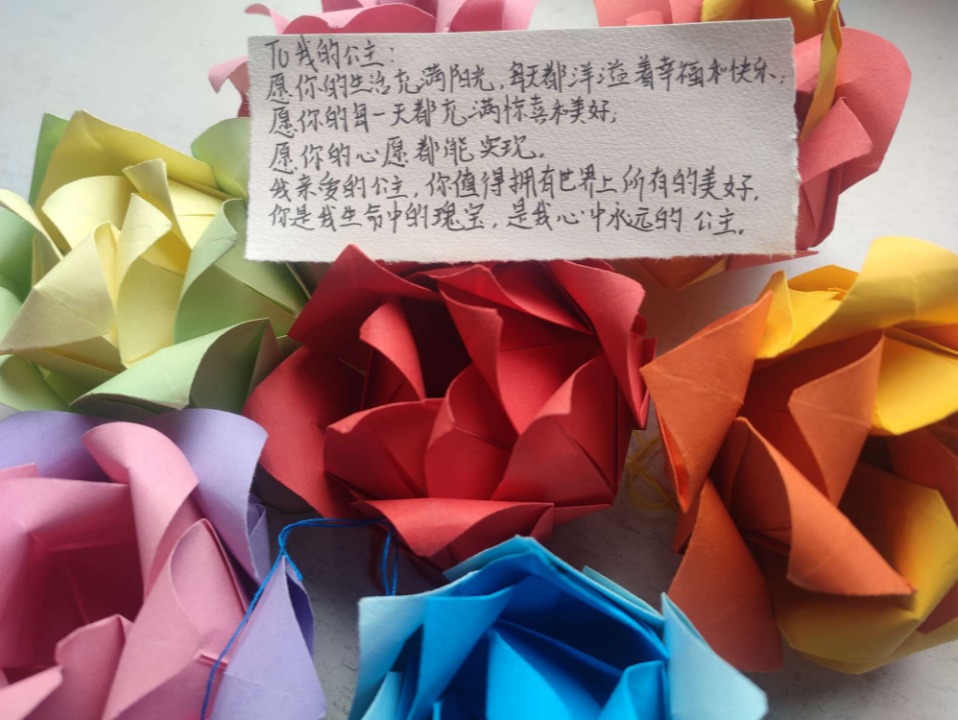 To我的公主:
愿你的生活充满阳光,每天都洋溢着幸福和快乐;
愿你的每一天都充满惊喜和美好;
愿你的心愿都能实现。
我亲爱的公主,你值得拥有世界上所有的美好。
你是我生命中的瑰宝,是我心中永远的公主。